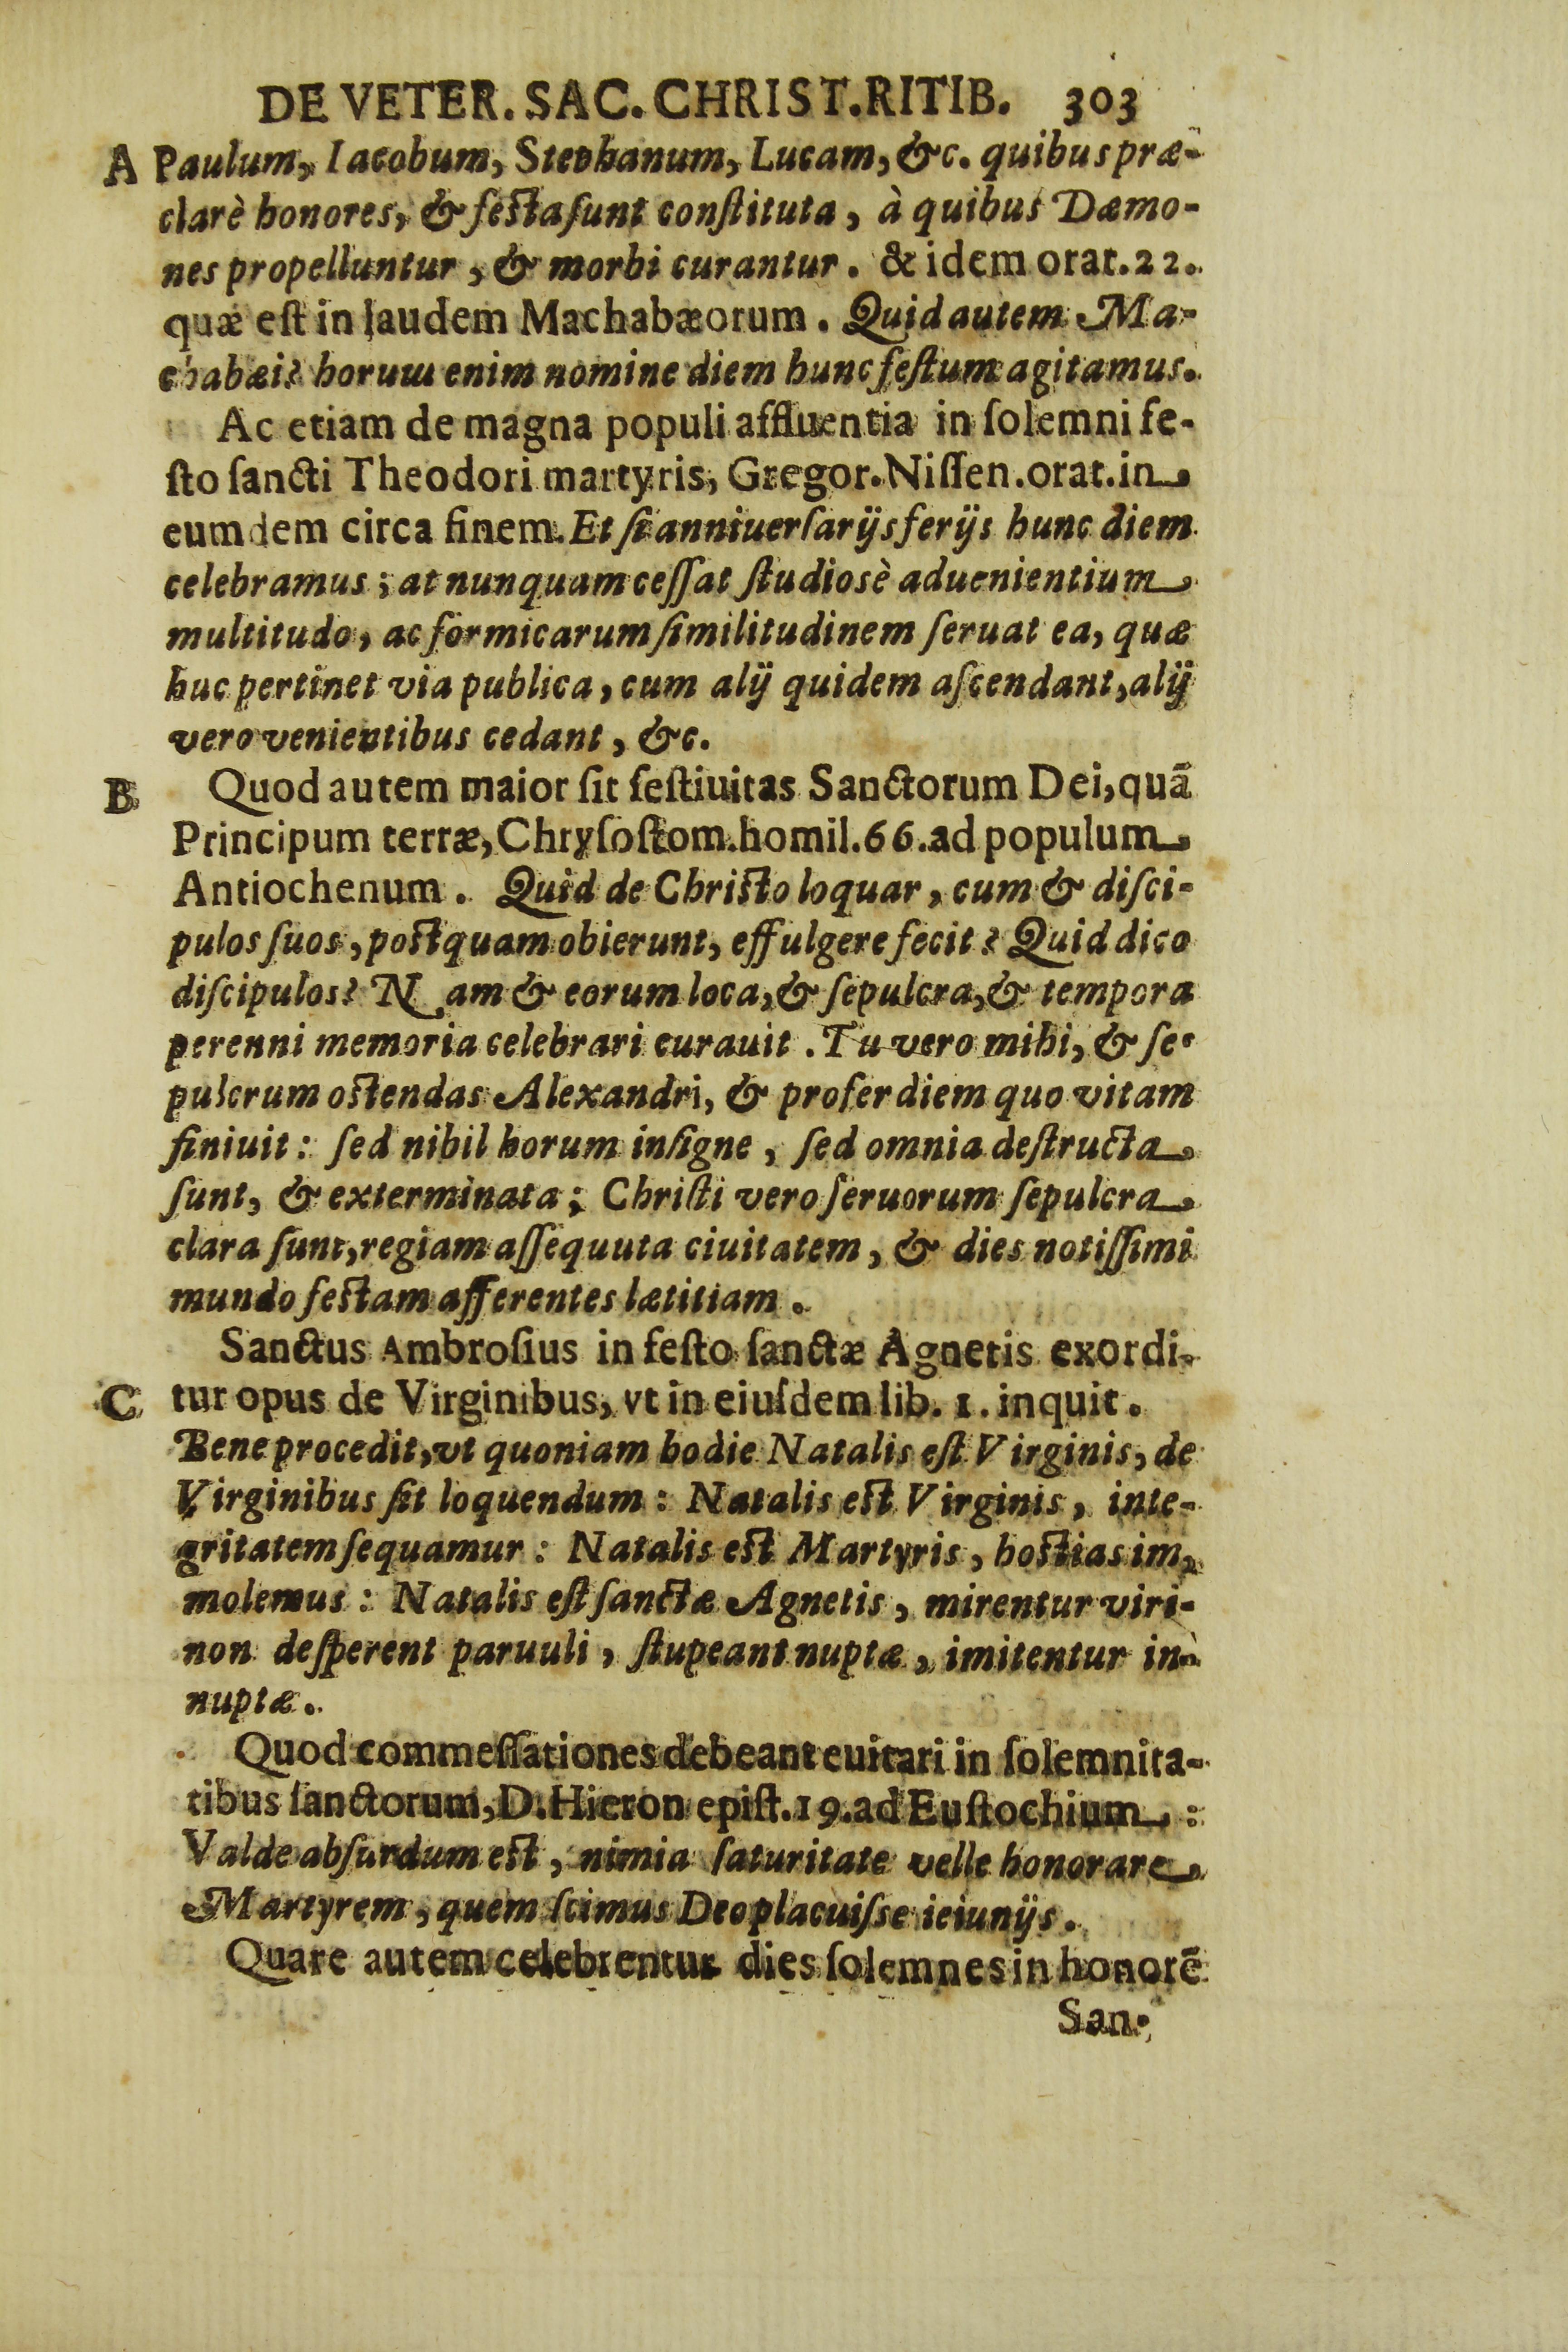 DE VETER. SAC. CHRIST. RITIB. 303
A Paulum, Iacobum, Stephanum, Lucam, &c. quibus præ-
clarè honores, & festa sunt constituta, à quibus Dæmo-
nes propelluntur, & morbi curantur. & idem orat. 22.
quæ est in laudem Machabæorum. Quid autem Ma-
chabæi? horum enim nomine diem hunc festum agitamus.
Ac etiam de magna populi affluentia in solemni fe-
sto sancti Theodori martyris, Gregor. Nissen. orat. in
eumdem circa finem. Et si anniuersarijs ferijs hunc diem
celebramus; at nunquam cessat studiosè aduenientium
multitudo, ac formicarum similitudinem seruat ea, quæ
huc pertinet via publica, cum alij quidem ascendant, alij
vero venientibus cedant, &c.
B Quod autem maior sit festiuitas Sanctorum Dei, quã
Principum terræ, Chrysostom. homil. 66. ad populum
Antiochenum. Quid de Christo loquar, cum & disci-
pulos suos, postquam obierunt, effulgere fecit? Quid dico
discipulos? Nam & eorum loca, & sepulcra, & tempora
perenni memoria celebrari curauit. Tu vero mihi, & se-
pulcrum ostendas Alexandri, & profer diem quo vitam
finiuit: sed nihil horum insigne, sed omnia destructa
sunt, & exterminata; Christi vero seruorum sepulcra
clara sunt, regiam assequuta ciuitatem, & dies notissimi
mundo festam afferentes lætitiam.
Sanctus Ambrosius in festo sanctæ Agnetis exordi-
C tur opus de Virginibus, vt in eiusdem lib. 1. inquit.
Bene procedit, vt quoniam hodie Natalis est Virginis, de
Virginibus sit loquendum: Natalis est Virginis, inte-
gritatem sequamur: Natalis est Martyris, hostias im-
molemus: Natalis est sanctæ Agnetis, mirentur viri-
non desperent paruuli, stupeant nuptæ, imitentur in-
nuptæ.
Quod commessationes debeant euitari in solemnita-
tibus sanctorum, D. Hieron epist. 19. ad Eustochium:
Valde absurdum est, nimia saturitate velle honorare
Martyrem, quem scimus Deo placuisse ieiunijs.
Quare autem celebrentur dies solemnes in honorẽ
San-